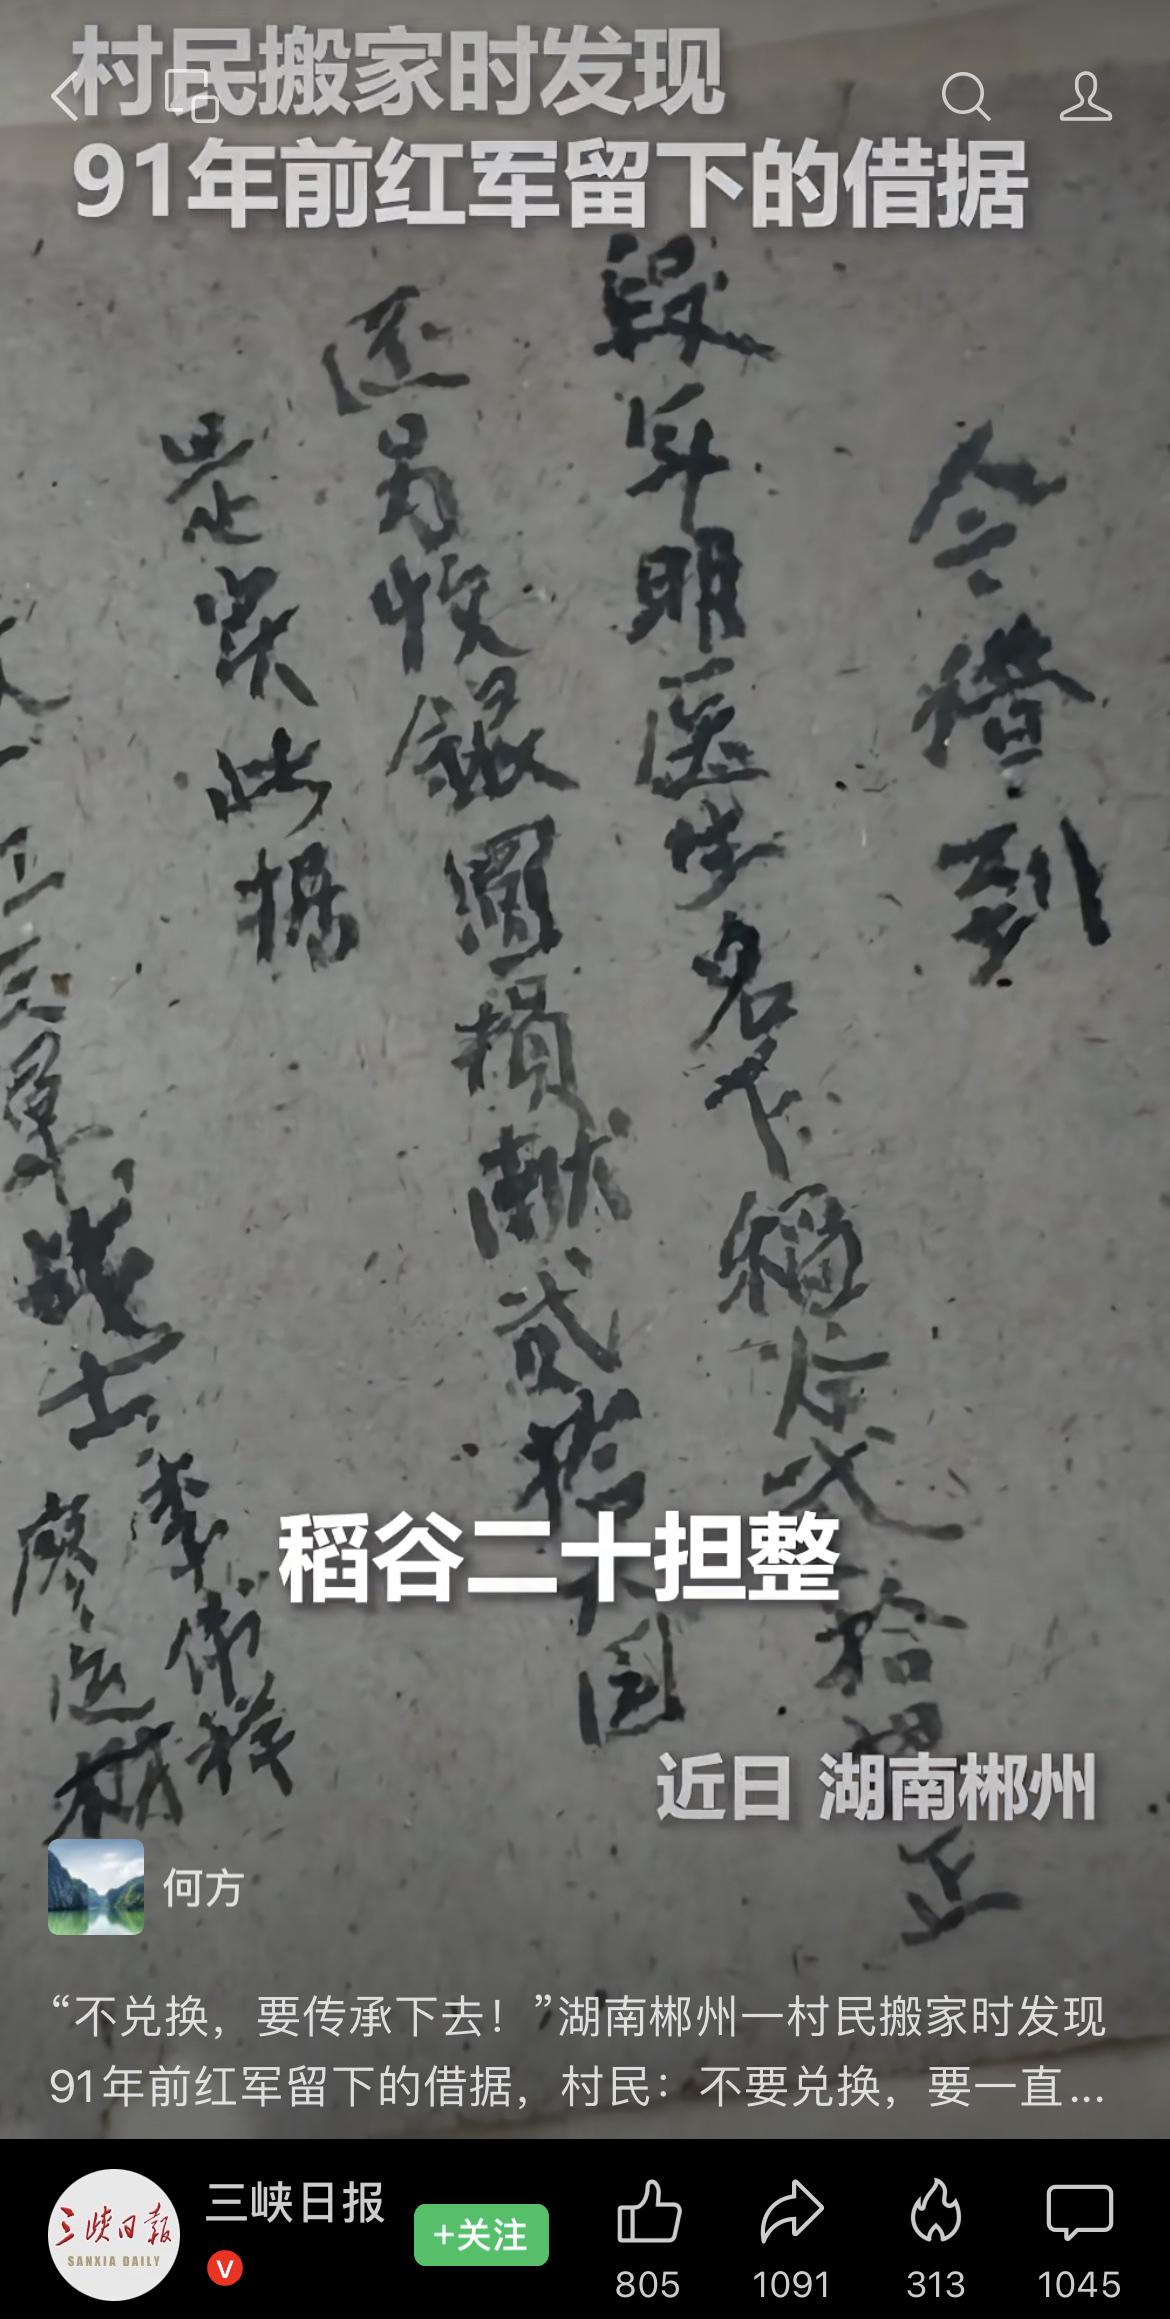 村民搬家时发现
91年前红军留下的借据
今借到
段年明医生名下稻谷弍拾担正
还另收銀圓捐献贰拾 圆
是实此据
战士
李
廖
稻谷二十担整
近日 湖南郴州
何方
“不兑换，要传承下去！”湖南郴州一村民搬家时发现
91年前红军留下的借据，村民：不要兑换，要一直...
三峡日報
SANXIA DAILY
三峡日报
V
+关注
805
1091
313
1045